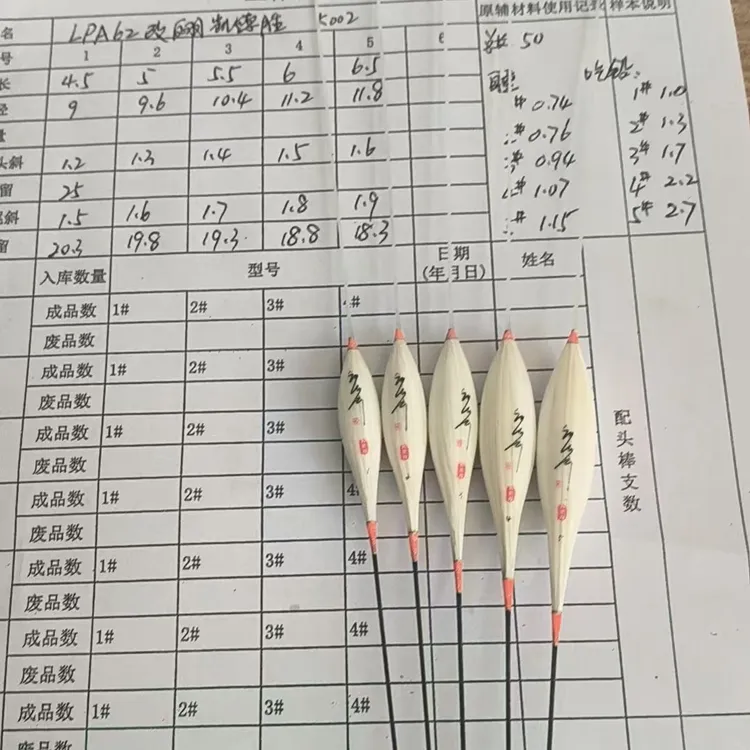 名 LPA62改 5002 原辅材料使用记录 样本说明
号 1 2 3 4 5 6 50
长 4.5 5 5.5 6 6.5
径 9 9.6 10.4 11.2 11.8 吃铅:
量 # 0.74 1# 1.0
头斜 1.2 1.3 1.4 1.5 1.6 # 0.76 2# 1.3
留 25 # 0.94 3# 1.7
尾斜 1.5 1.6 1.7 1.8 1.9 # 1.07 4# 2.2
留 20.3 19.8 19.3 18.8 18.3 # 1.15 5# 2.7
入库数量 型号 日期 姓名
(年月日)
成品数 1# 2# 3# #
废品数
成品数 1# 2# 3#
废品数
成品数 1# 2# 3#
废品数
成品数 1# 2# 3# 4#
废品数
成品数 1# 2# 3# 4#
废品数
成品数 1# 2# 3# 4#
废品数
成品数 1# 2# 3# 4#
废品数
配头棒支数